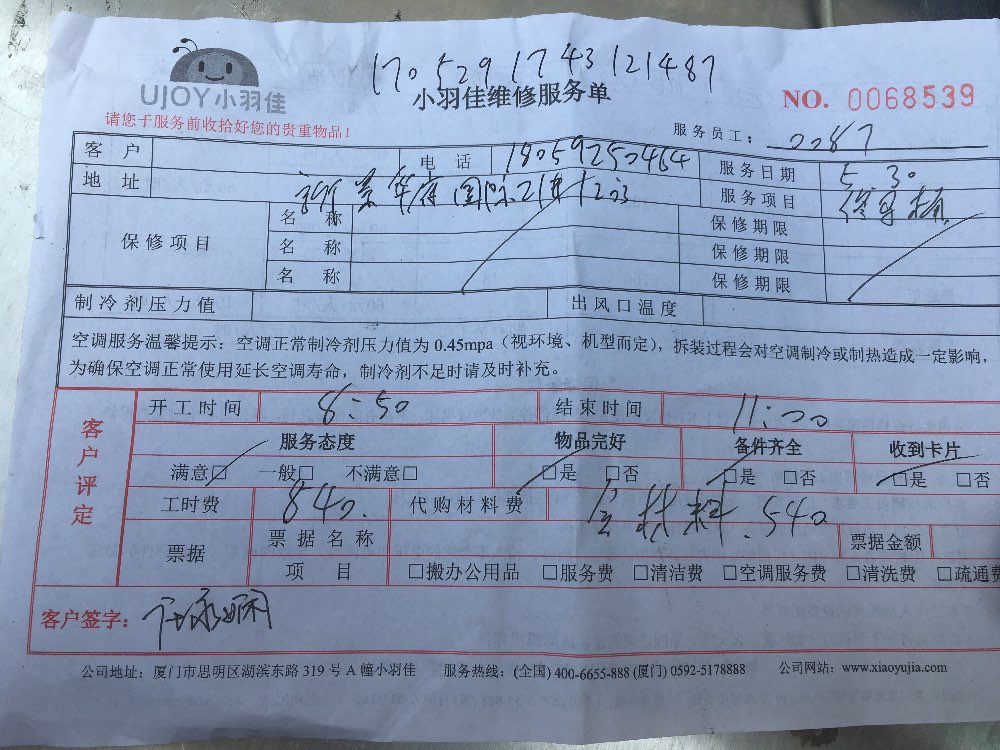 170529 1743 121487
UJOY小羽佳
小羽佳维修服务单
NO. 0068539
请您于服务前收拾好您的贵重物品！
服务员工： 0087
客 户 电 话 18059250464 服务日期 5.30
地 址 新景华府国际 服务项目
保修项目
名 称 保修期限
名 称 保修期限
名 称 保修期限
制冷剂压力值 出风口温度
空调服务温馨提示：空调正常制冷剂压力值为 0.45mpa（视环境、机型而定），拆装过程会对空调制冷或制热造成一定影响，
为确保空调正常使用延长空调寿命，制冷剂不足时请及时补充。
客户评定
开工时间 8:50 结束时间 11:00
服务态度 物品完好 备件齐全 收到卡片
满意□ 一般□ 不满意□ □是 □否 □是 □否 □是 □否
工时费 840. 代购材料费 含材料.540
票据 票 据 名 称 票据金额
项 目 □搬办公用品 □服务费 □清洁费 □空调服务费 □清洗费 □疏通费
客户签字：
公司地址：厦门市思明区湖滨东路 319 号 A 幢小羽佳 服务热线：(全国) 400-6655-888 (厦门) 0592-5178888 公司网站：www.xiaoyujia.com